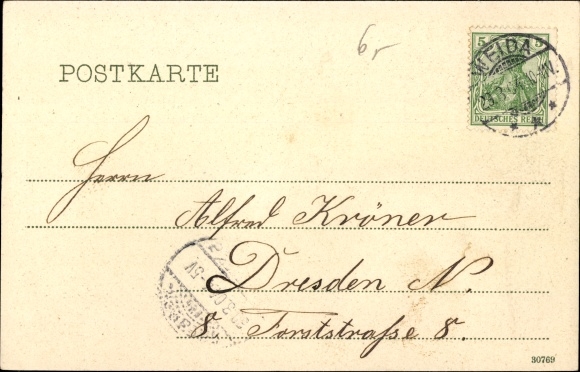 6,-
5 5
WEIDA
DEUTSCHES REICH
POSTKARTE
Herrn
Alfred Kröner
Dresden N.
8, Forststraße 8.
30769